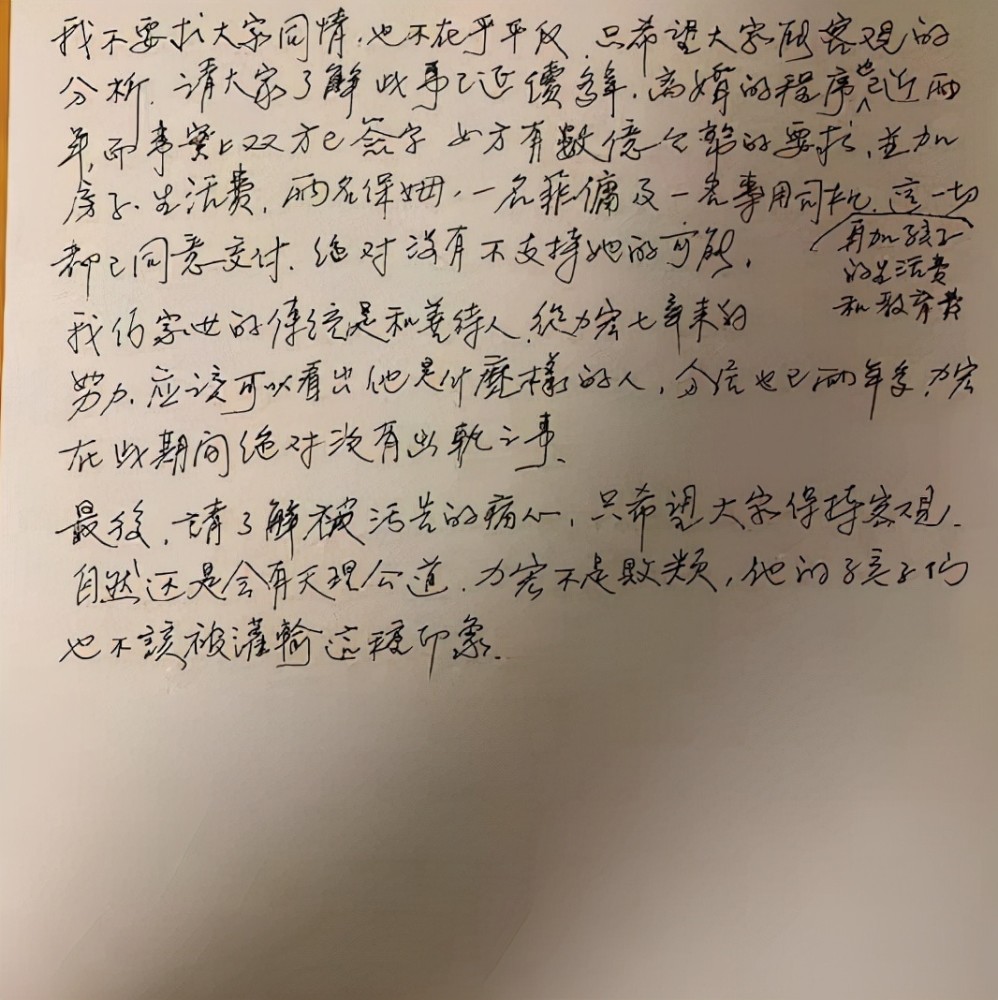 我不要求大家同情,也不在乎平反,只希望大家能客观的
分析.請大家了解此事已延續多年,离婚的程序也已近两
年,而事實上双方已簽字 女方有數億台幣的要求,並加
房子、生活費,两名保姆,一名菲傭及一名專用司机,這一切
再加孩子
的生活費
和教育費
都已同意交付.绝对沒有不支持她的可能.
我们家世的傳統是和善待人,從力宏七章来的
努力,应该可以看出他是什麼樣的人,分居也已两年多,力宏
在此期间绝对没有出軌之事.
最後,請了解被污告的痛心,只希望大家保持客观.
自然还是会有天理公道.力宏不是敗類,他的孩子们
也不該被灌輸這種印象.